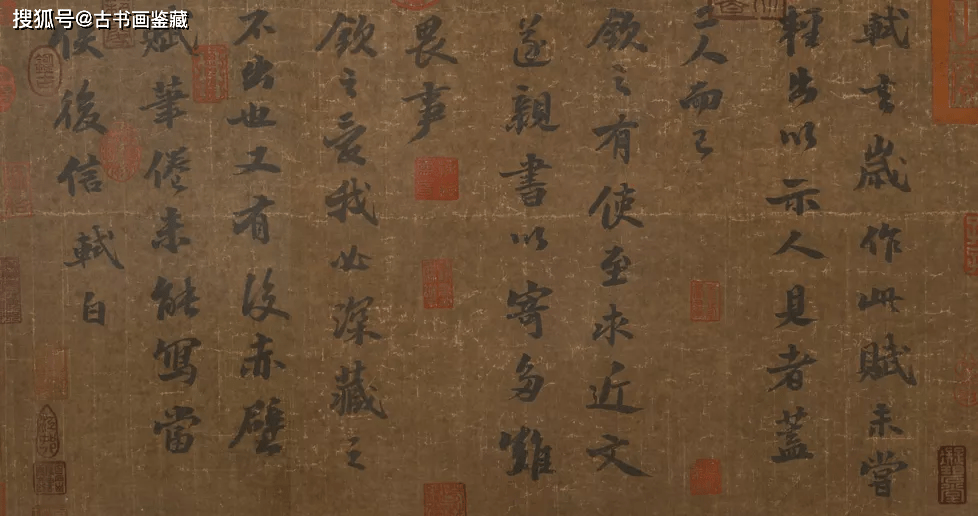 搜狐号@古书画鉴藏
軾去歲作此賦未嘗
輕出以示人見者蓋
一二人而已
欽之有使至求近文
遂親書以寄多難
畏事
欽之愛我必深藏之
不出也又有後赤壁
賦筆倦未能寫當
俟後信軾白